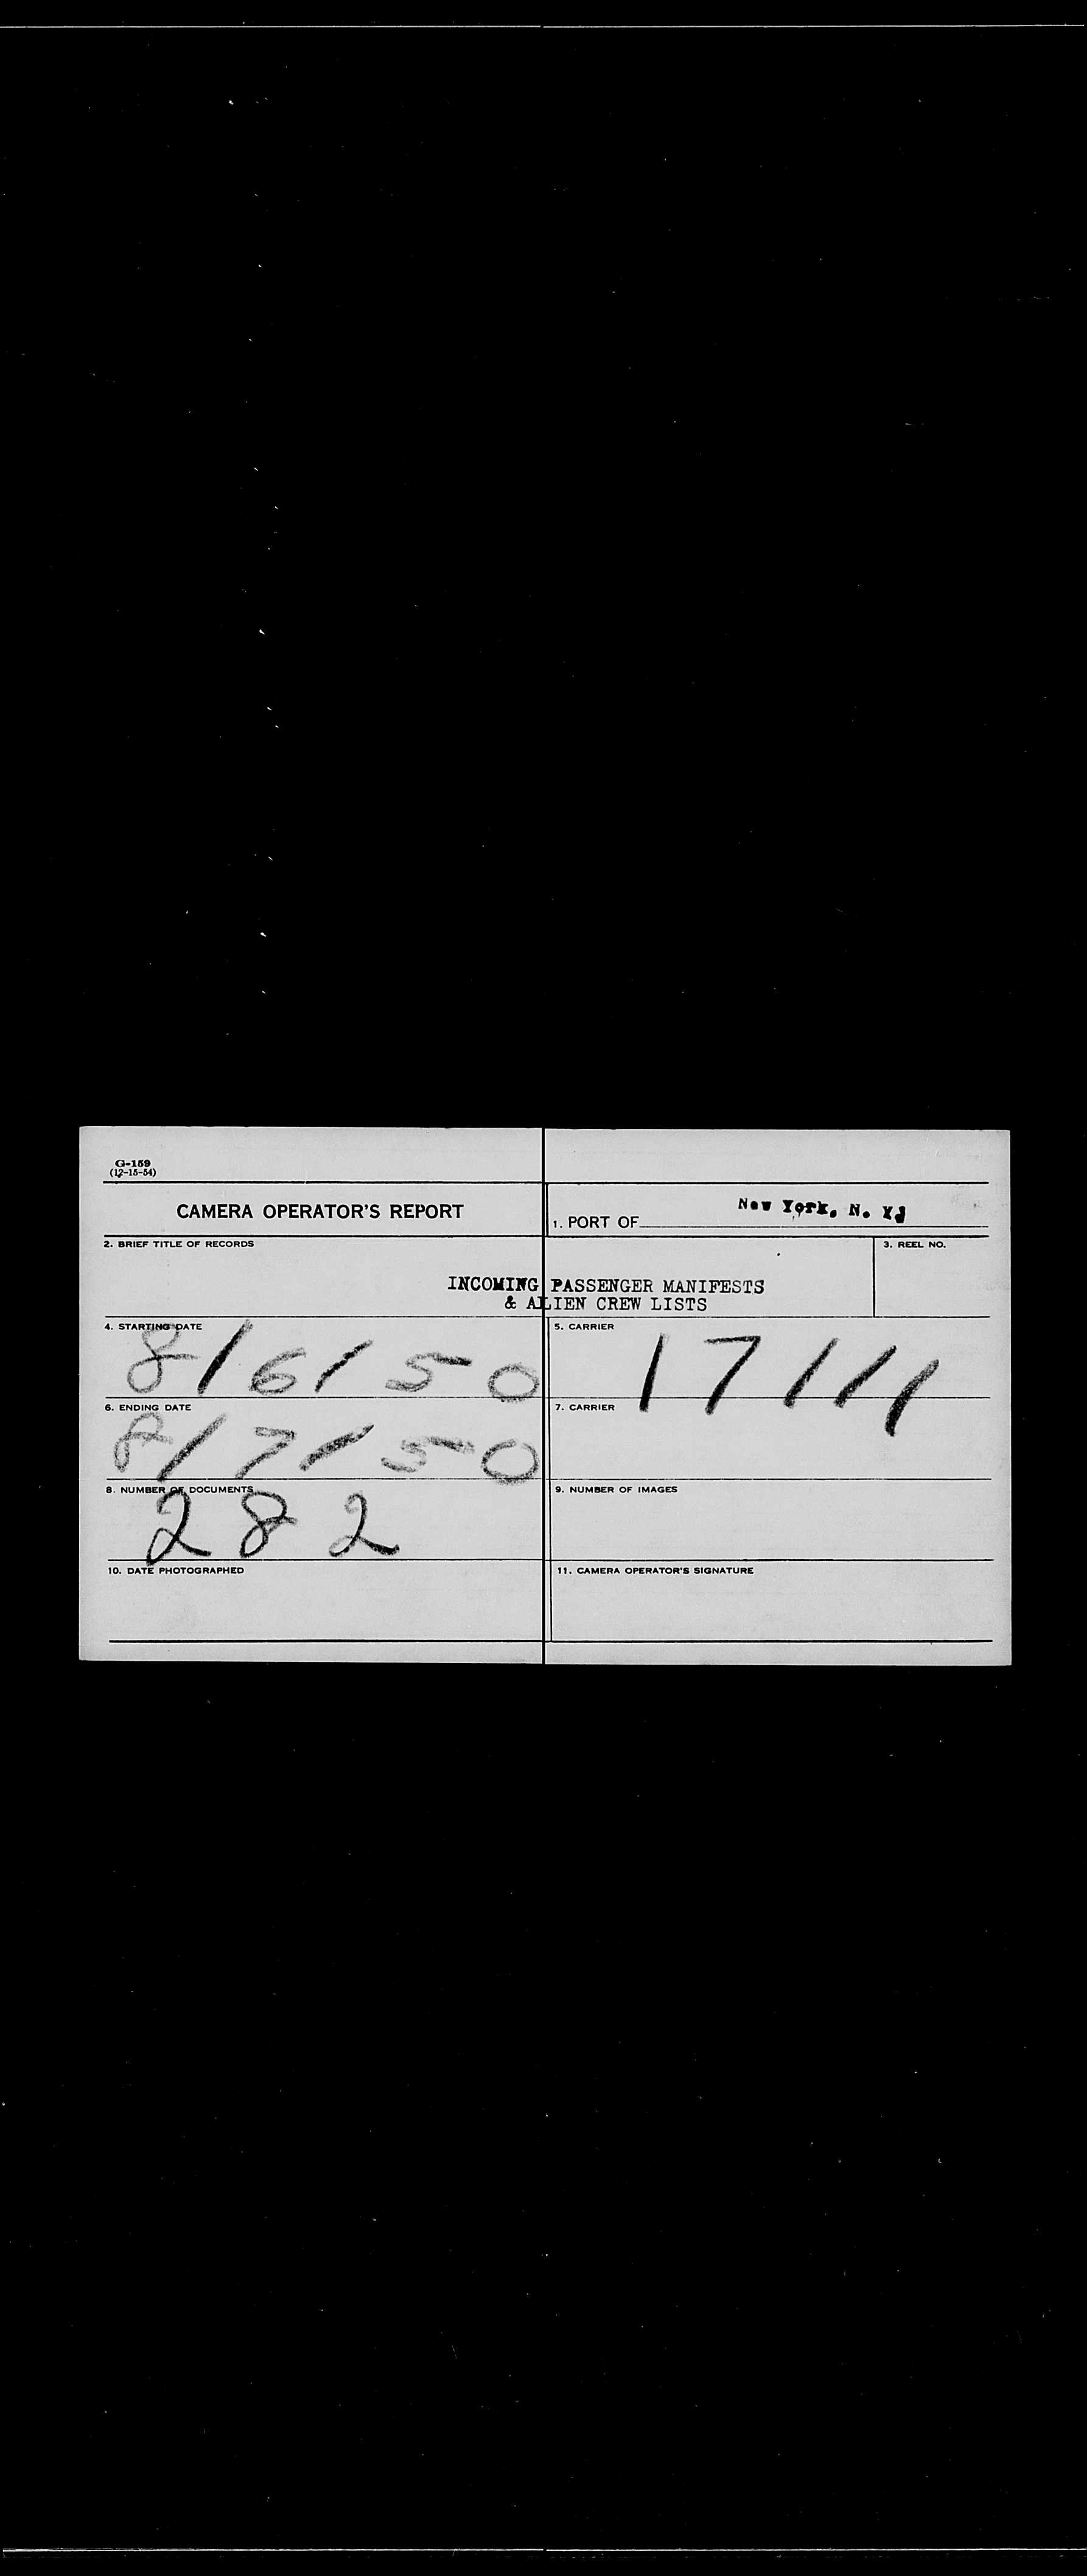 G-159
(12-15-54)
CAMERA OPERATOR'S REPORT
1. PORT OF New York, N. Y.
2. BRIEF TITLE OF RECORDS
3. REEL NO.
INCOMING PASSENGER MANIFESTS
& ALIEN CREW LISTS
4. STARTING DATE
8/6/50
5. CARRIER
17111
6. ENDING DATE
8/7/50
7. CARRIER
8. NUMBER OF DOCUMENTS
282
9. NUMBER OF IMAGES
10. DATE PHOTOGRAPHED
11. CAMERA OPERATOR'S SIGNATURE